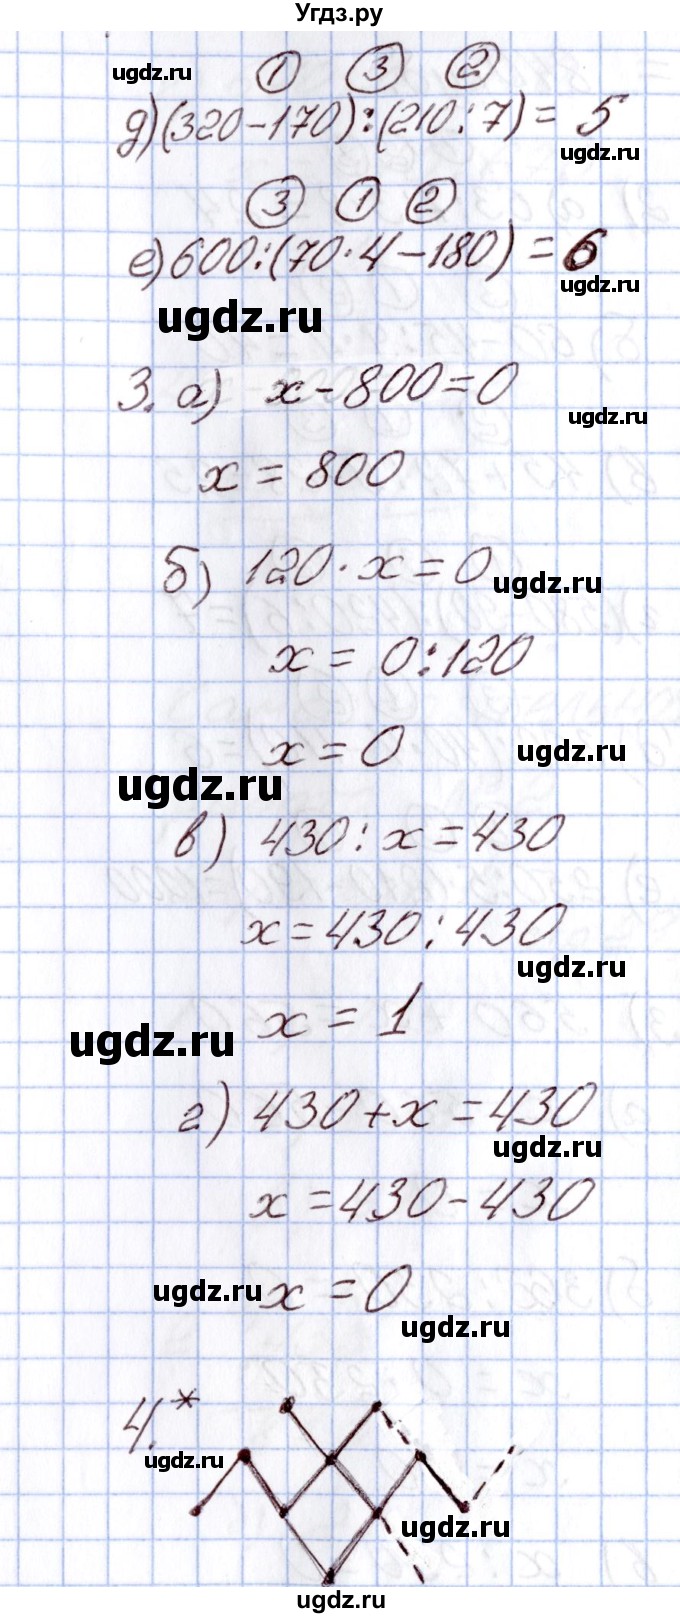 Угдз.ру
ugdz.ru
① ③ ②
д)(320-170):(210:7)= 5
ugdz.ru
③ ① ②
е)600:(70·4-180)=6
ugdz.ru
ugdz.ru
3. а) x-800=0
ugdz.ru
x=800
б) 120·x=0
ugdz.ru
x= 0:120
x=0
ugdz.ru
ugdz.ru
в) 430:x=430
x=430:430
ugdz.ru
x=1
ugdz.ru
г) 430+x=430
ugdz.ru
x=430-430
x=0
ugdz.ru
ugdz.ru
4.*
ugdz.ru
ugdz.ru
ugdz.ru